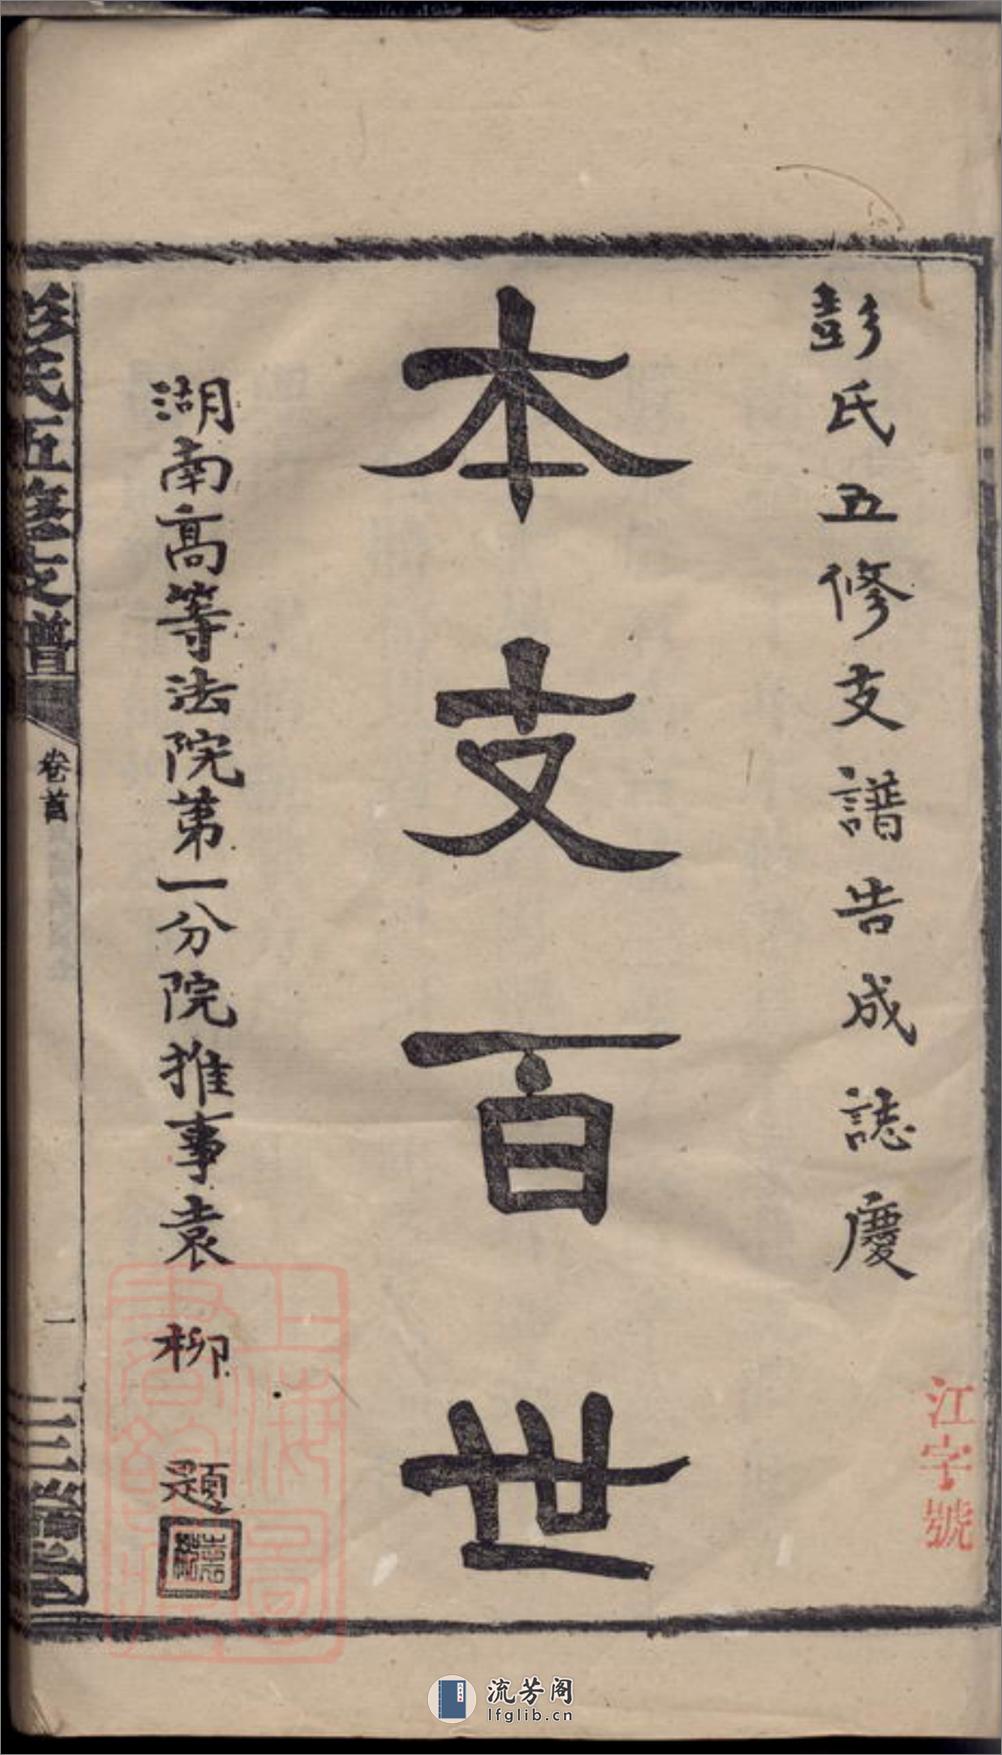 彭氏五修支譜告成誌慶
江字號
本支百世
湖南高等法院第一分院推事袁柳題
彭氏五修支譜
卷首
一
三瑞堂
上海圖書館藏
流芳阁
lfglib.cn